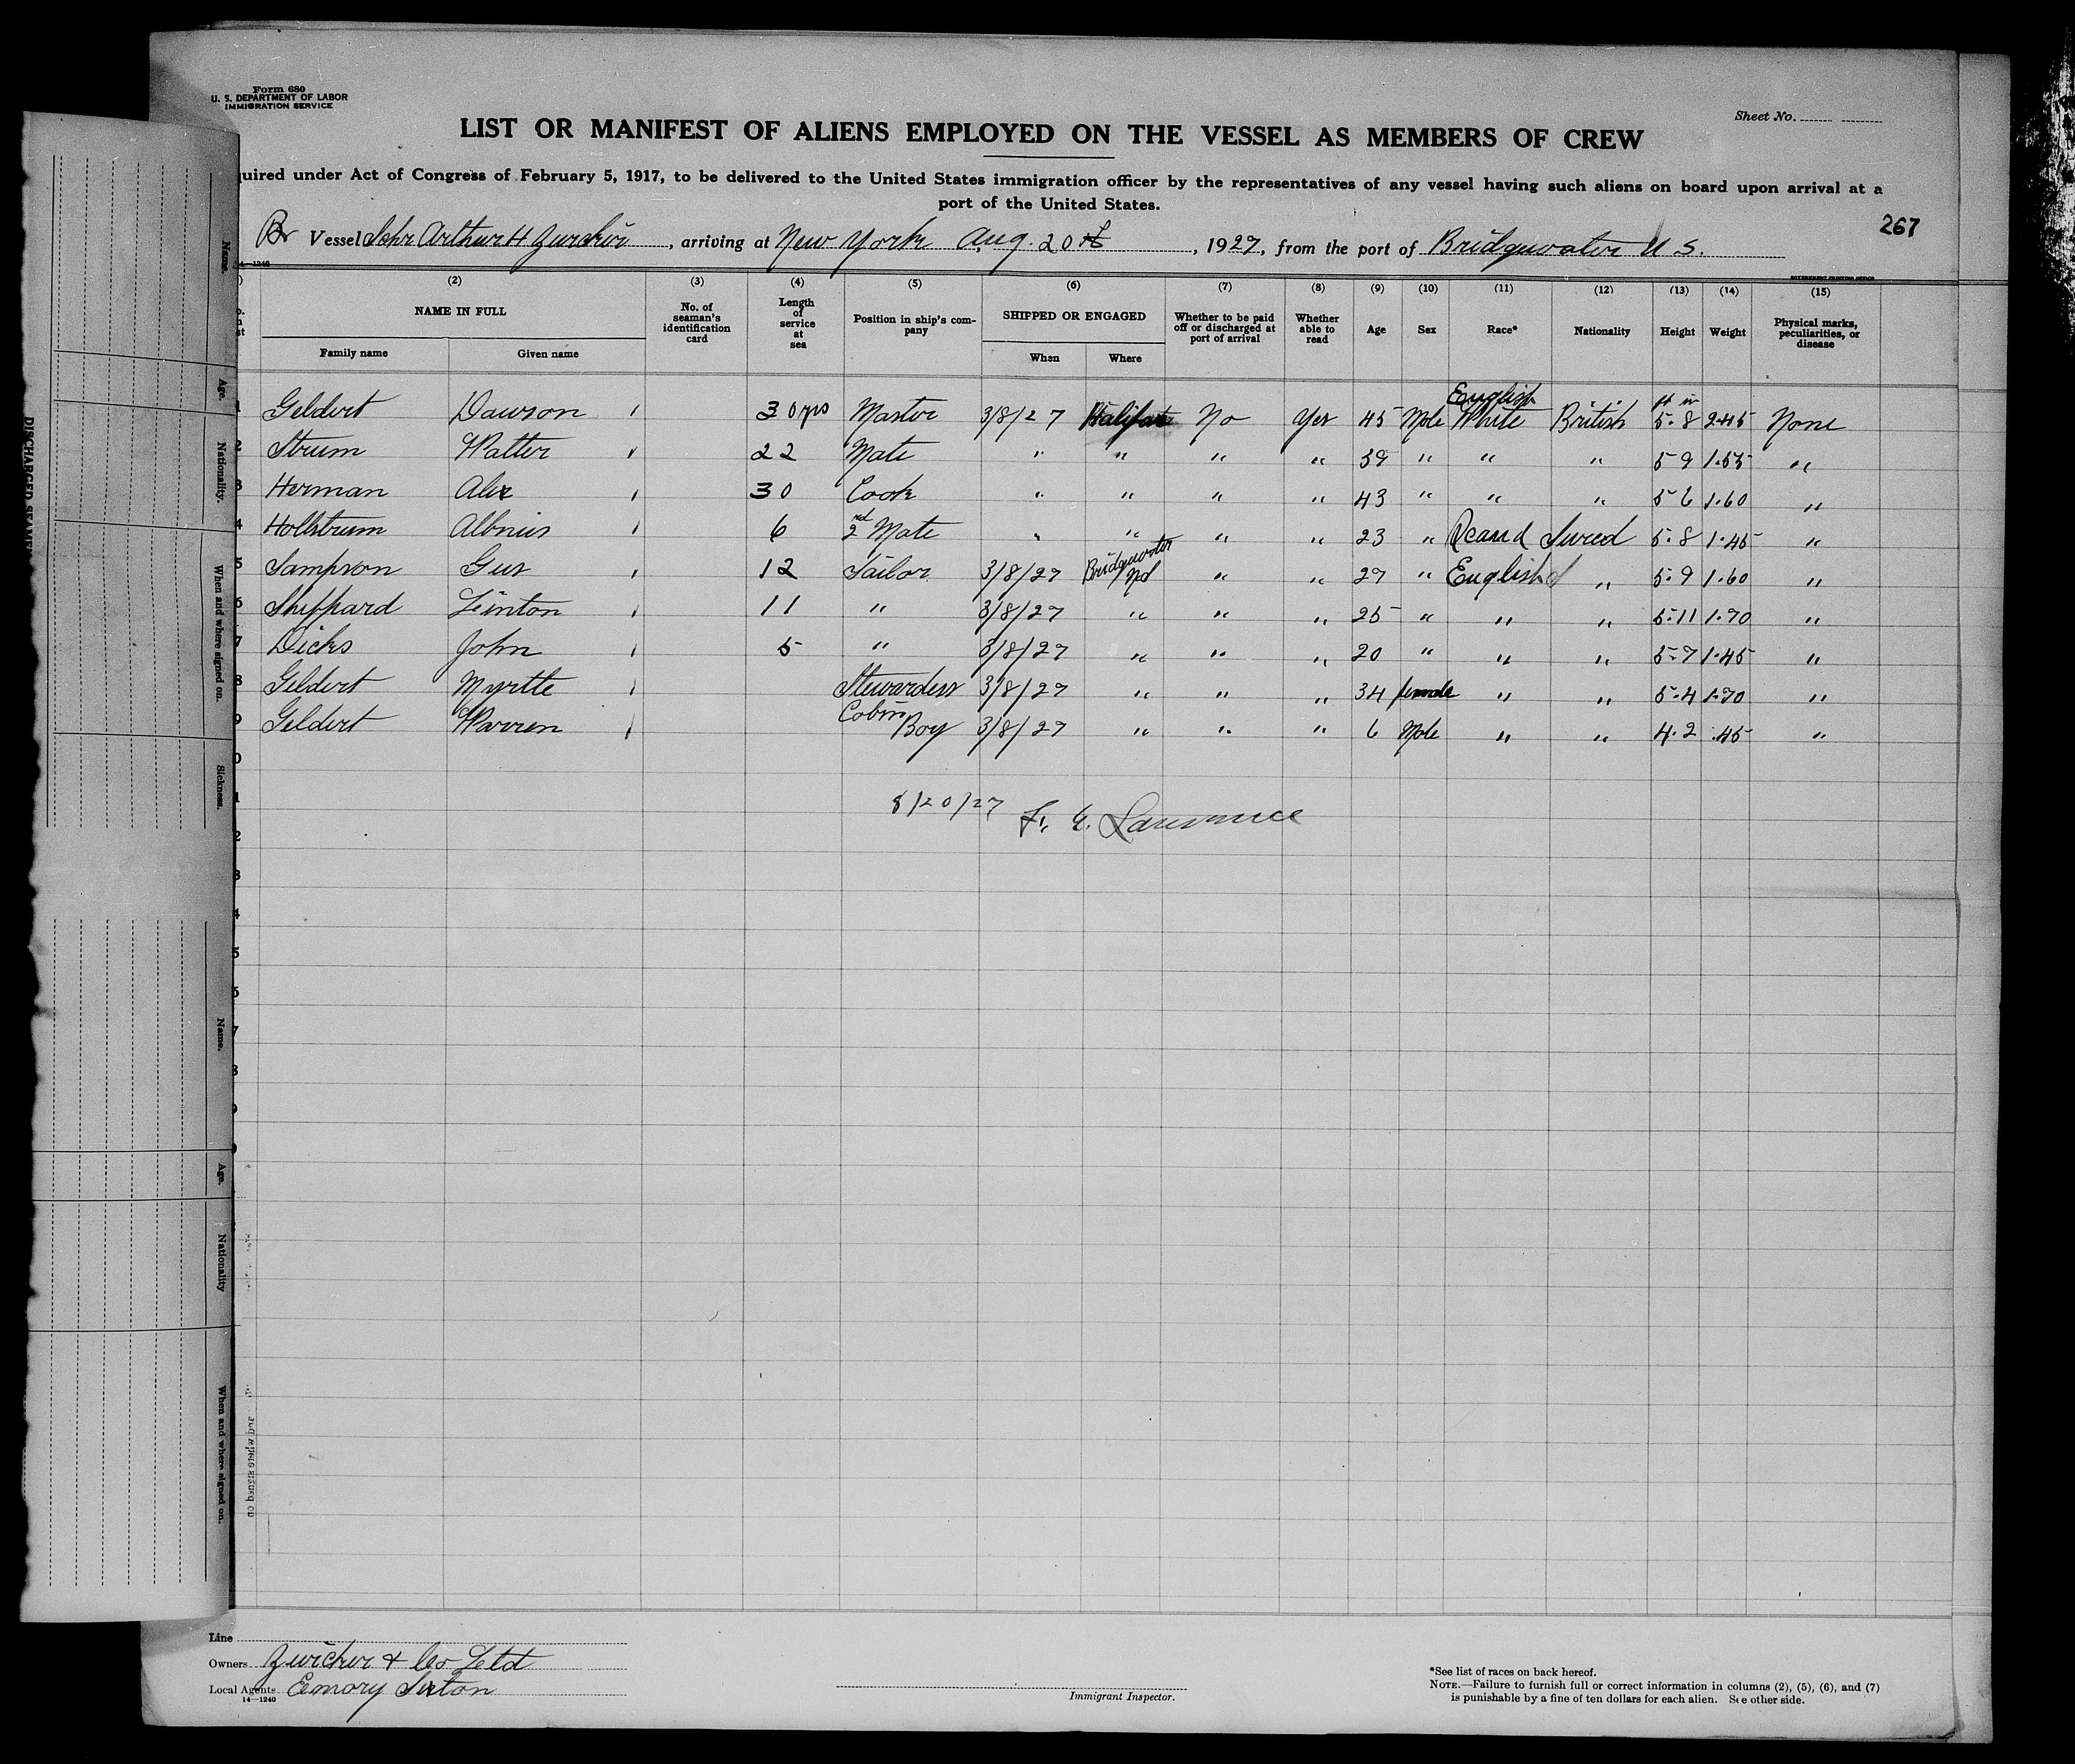 Form 680
U. S. DEPARTMENT OF LABOR
IMMIGRATION SERVICE
Sheet No.
LIST OR MANIFEST OF ALIENS EMPLOYED ON THE VESSEL AS MEMBERS OF CREW
quired under Act of Congress of February 5, 1917, to be delivered to the United States immigration officer by the representatives of any vessel having such aliens on board upon arrival at a
port of the United States.
267
Br Vessel Schr Arthur H Zwicker, arriving at New York Aug. 20th, 1927, from the port of Bridgewater N S.
14—1240
GOVERNMENT PRINTING OFFICE
(2) (3) (4) (5) (6) (7) (8) (9) (10) (11) (12) (13) (14) (15)
NAME IN FULL No. of seaman's identification card Length of service at sea Position in ship's company SHIPPED OR ENGAGED Whether to be paid off or discharged at port of arrival Whether able to read Age Sex Race* Nationality Height Weight Physical marks, peculiarities, or disease
Family name Given name When Where
English ft in
1 Geldert Dawson 30 yrs Master 3/8/27 Halifax No Yes 45 Male White British 5.8 245 None
2 Strum Walter 22 Mate " " " " 39 " " " 5 9 1.55 "
3 Herman Alex 30 Cook " " " " 43 " " " 5 6 1.60 "
4 Hollstrum Albnius 6 2nd Mate " " " " 23 " Scand Sweed 5.8 1.45 "
5 Sampson Gus 12 Sailor 3/8/27 Bridgwater Nd " " 27 " English " 5.9 1.60 "
6 Sheppard Linton 11 " 3/8/27 " " " 25 " " " 5.11 1.70 "
7 Dicks John 5 " 3/8/27 " " " 20 " " " 5.7 1.45 "
8 Geldert Myrtle Stewardess 3/8/27 " " " 34 female " " 5.4 1.70 "
9 Geldert Warren Cobin Boy 3/8/27 " " " 6 Male " " 4.2 .45 "
8/20/27 F. E. Lawrence
Line
Owners Zwicker & Co Letd
Local Agents Emory Sexton
14—1240
Immigrant Inspector.
*See list of races on back hereof.
NOTE.—Failure to furnish full or correct information in columns (2), (5), (6), and (7)
is punishable by a fine of ten dollars for each alien. See other side.
DISCHARGED SEAMEN
Name.
Age.
Nationality.
When and where signed on.
Sickness.
Name.
Age.
Nationality
When and where signed on.